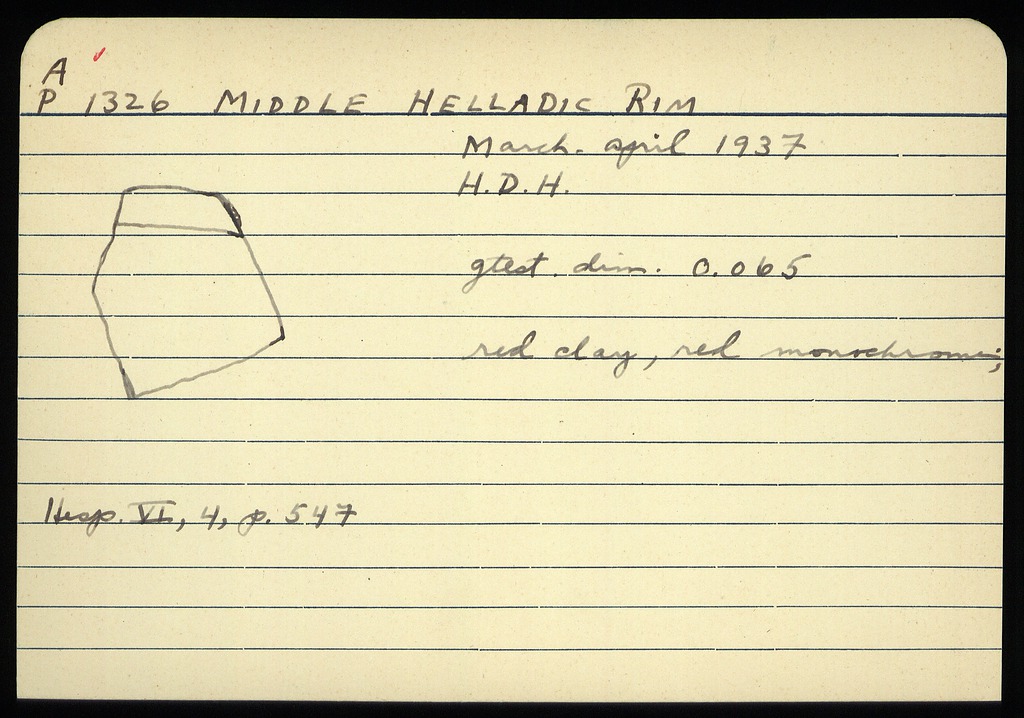 A
P 1326 MIDDLE HELLADIC RIM
March. april 1937
H.D.H.
gtest. dim. 0.065
red clay, red monochrome;
Hesp. VI, 4, p. 547